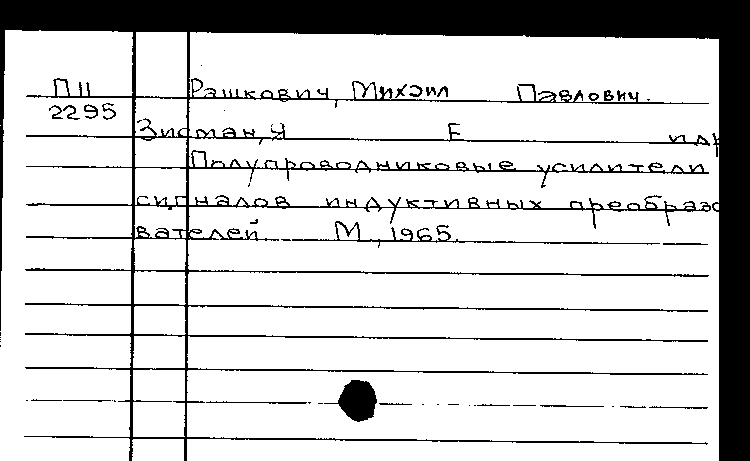 П11 Рашкович, Михаил Павлович.
2295
Зисман, Я Е и др
Полупроводниковые усилители
сигналов индуктивных преобразо
вателей. М., 1965.